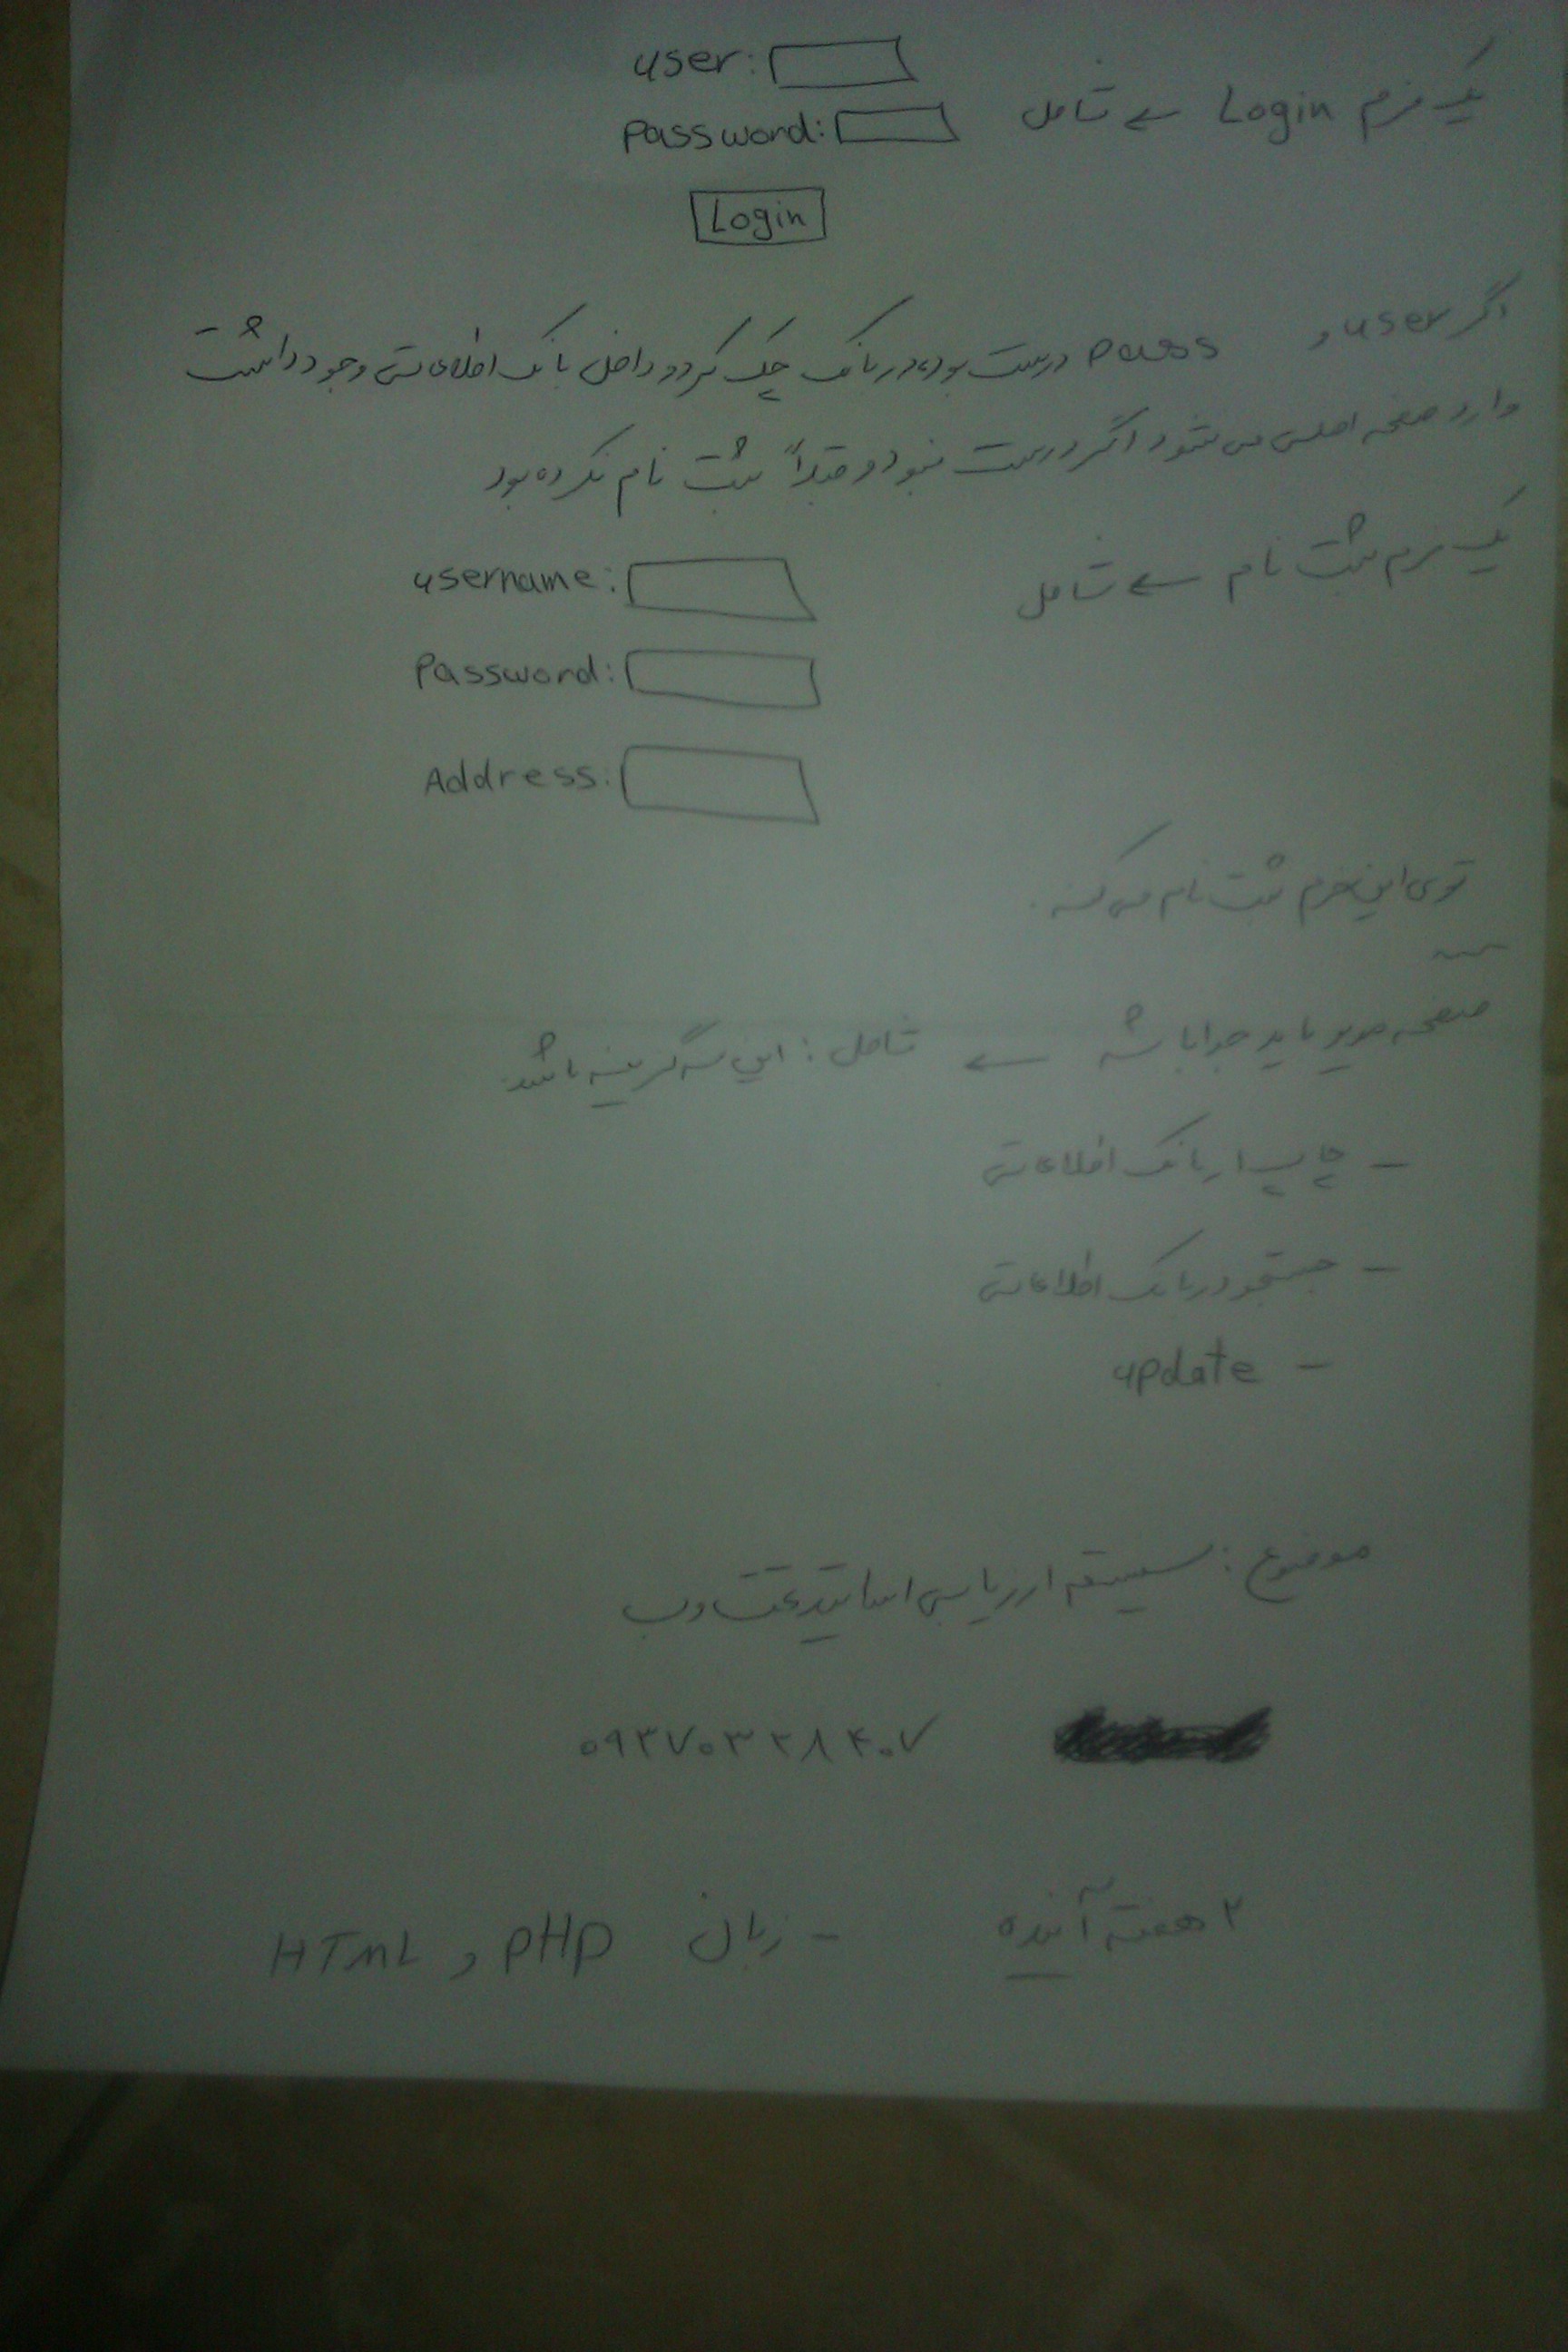 یک فرم Login ← شامل user:
password:
Login
اگر user و pass درست بود، در بانک چک کرد و داخل بانک اطلاعاتی وجود داشت
وارد صفحه اصلی می شود اگر درست نبود و قبلاً ثبت نام نکرده بود
یک فرم ثبت نام ← شامل username:
Password:
Address:
توی این فرم ثبت نام می کنه.
صفحه مدیر باید جدا باشه ← شامل : این سه گزینه باشد
- چاپ از بانک اطلاعاتی
- جستجو در بانک اطلاعاتی
- update
موضوع : سیستم ارزیابی اساتید تحت وب
۲ هفته آینده - زبان PHP و HTML